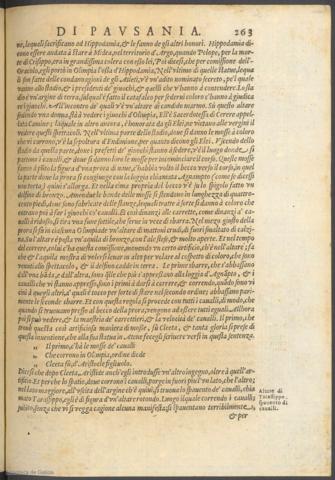 DI PAVSANIA. 263
ne, lequali sacrificano ad Hippodamia, & le fanno de gli altri honori. Hippodamia di-
cono essere andata à stare à Midea, nel territorio d'Argo, quando Pelope, per la mor-
te di Crisippo, era in grandissima colera con esso lei. Poi dicesi, che per comissione dell'-
Oracolo, egli portò in Olimpia l'ossa d'Hippodamia. Nell'ultimo di quelle statue, lequa
li son fatte delle condannagioni de gli Atleti, v'è un'adito nominato secreto, pe'l quale
vanno allo stadio, & i presidenti de' giuochi, & quelli che v'hanno à contendere. Lo sta
dio è un'argine di terra, sulqual è fatto il catafalco per sedervi coloro c'hanno à giudica
re i giuochi. All'incontro de' quali v'è un'altare di candido marmo. Sù questo altare
sedendo una donna, stà à vedere i giuochi d'Olimpia, Ell'è Sacerdotessa di Cerere appel-
veder questi spettacoli. Nell'ultima parte dello stadio, dove si danno le mosse à coloro
che vi corrono, v'è la sepoltura d'Endimione, per quanto dicono gli Elei.
stadio da quella parte, dove i presidenti de' giuochi stanno à sedere, v'è il luogo donde
partono i cavalli, & dove si danno loro le mosse per incominciare il corso. Queste mosse
fanno à pieno la figura d'una prora di nave, & habbia volto il becco verso il corso, in quel
la parte dove la prora si congiunge con la loggia chiamata Agnampto (come se dicessi
non torta) quivi s'allarga. Et nella cima proprio del becco v'è sulo spigolo fatto un
delfino di bronzo. Amendue le bande delle mosse si stendono in lunghezza di quattro-
cento piedi, dove sono fabricate delle stanze, lequali tratte à sorte si danno à coloro che
entrano poi à far i giuochi co' cavalli. Et così dinanzi alle carrette, come dinanzi à' ca-
valli ridotti, si tira una fune sottile, che serve in cambio di sbarre. Nel mezo giusto della
prora si fà in ciascuna Olimpiade un'altare di mattoni crudi, di fuori smaltato di calci-
na. Sul'altare è posta un'aquila di bronzo, con l'ale stese, & molto aperte. Et nel tempo
del correre, colui c'ha questa commissione, movendo un certo artificio, ch'è nell'altare; fa
che l'aquila mostra di volersi levar in alto per volare al cospetto di coloro, che sono
venuti allo spettacolo, & il delfino cade in terra. Le prime sbarre, che s'abbassano
dall'una banda, & dall'altra, sono quelle che più s'appressano alla loggia d'Agnapto, & i
cavalli che vi stanno appresso sono i primi à darsi à correre, & correndo, quando sono vi
cini à quegli altri, à' quali è tocco per sorte di stare nel secondo ordine; s'abbassano pari-
mente le seconde sbarre. Et con questa regola si procede con tutti i cavalli, di modo, che
quando si truovano presso al becco della prora, vengono ad essere tutti eguali. Allhora
poi si può vedere, & la maestria de' carrettieri, & la velocità de' cavalli. Il primo, che
trovò questa così artificiosa maniera di mosse, fù Cleeta, & tanta gloria si prese di
questa inventione, che alla sua statua in Atene fece egli scrivere versi in questa sentenza.
,, Il primo, c'hà le mosse de' cavalli
,, Che corrono in Olimpia, ordine diede
,, Cleeta fù, d'Aristocle figliuolo.
Dicesi che dopo Cleeta, Aristide anch'egli introdusse un'altro ingegno, oltre à quell'ar-
tificio. Et perche lo spatio, dove corrono i cavalli, porge in fuori più l'un lato, che l'altro;
nel lato maggiore, all'uscita dell'argine ch'è quivi, si truova lo spavento de' cavalli, chia
mato Tarasippo, egli è di figura d'un'altare rotondo. Lungo ilquale correndo i cavalli,
subito, senza che vi si vegga cagione alcuna manifesta, si spaventano terribilmente,
& per
Altare di
Tarasippo,
spavento di
cavalli.